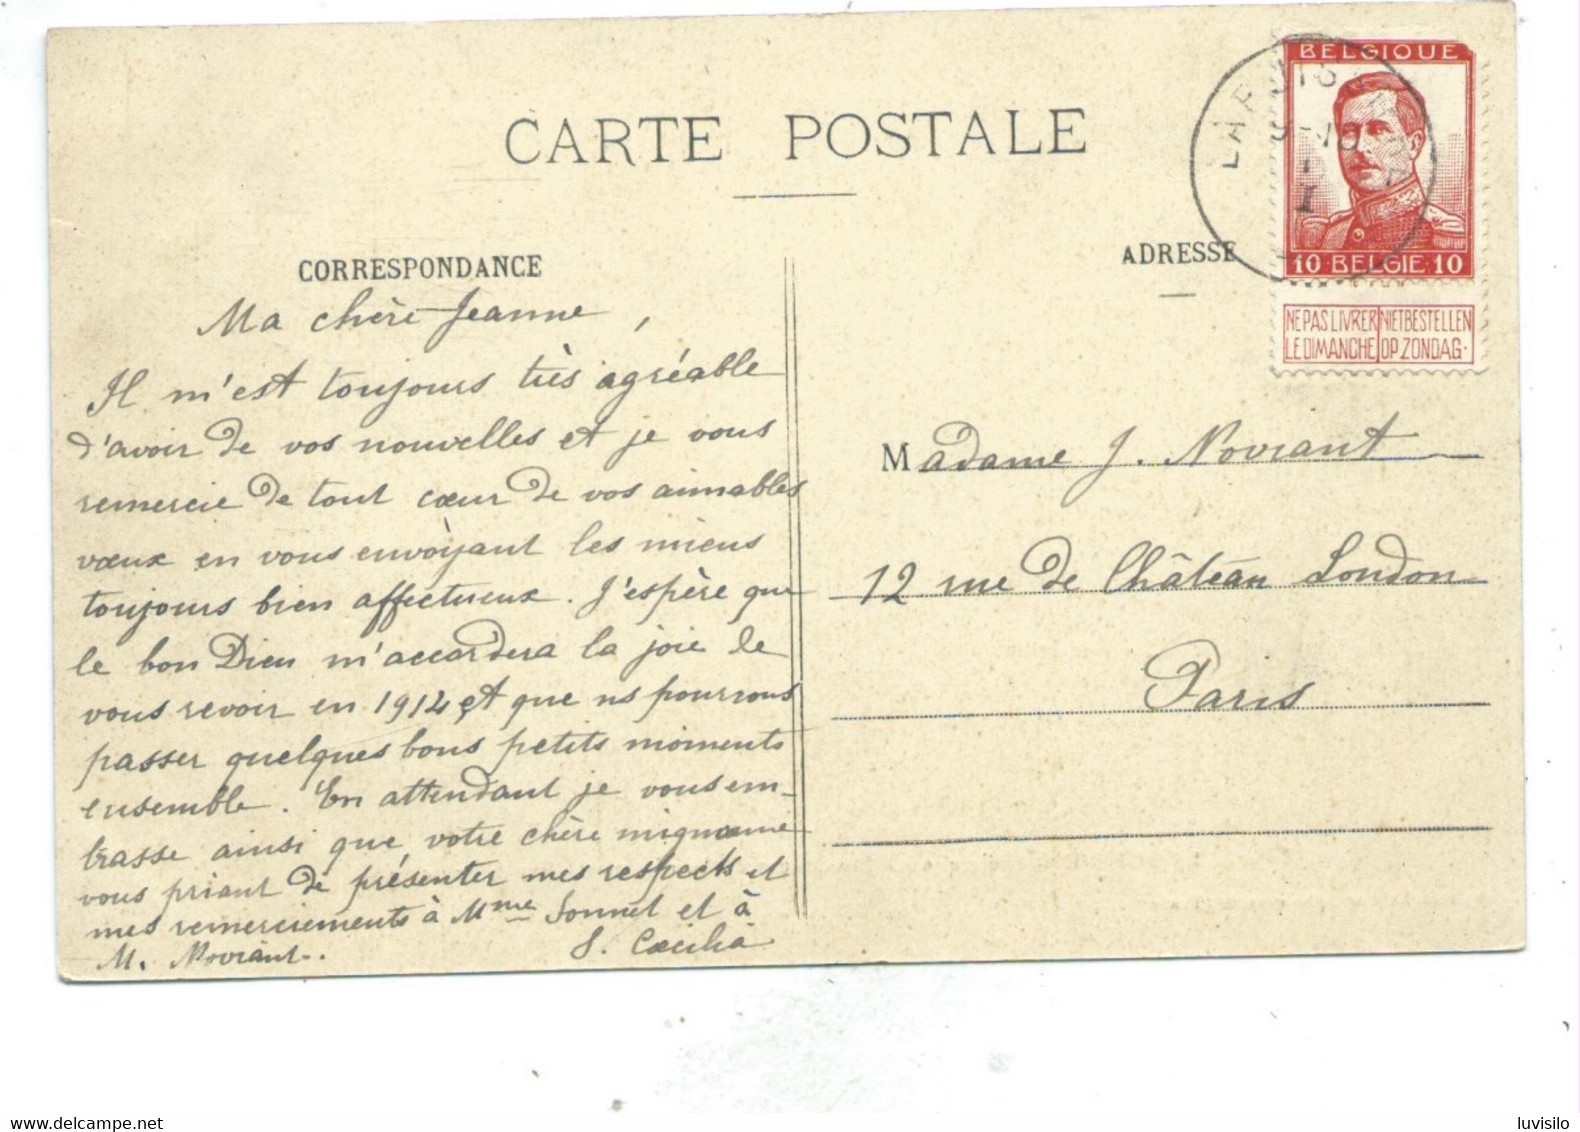 BELGIQUE
10 BELGIE 10
NE PAS LIVRER NIET BESTELLEN
LE DIMANCHE OP ZONDAG.
CARTE POSTALE
CORRESPONDANCE
ADRESSE
Ma chère Jeanne,
Il m'est toujours très agréable
d'avoir de vos nouvelles et je vous
remercie de tout cœur de vos aimables
vœux en vous envoyant les miens
toujours bien affectueux. J'espère que
le bon Dieu m'accordera la joie de
vous revoir en 1914 et que ns pourrons
passer quelques bons petits moments
ensemble. En attendant je vous em-
brasse ainsi que votre chère mignonne
vous priant de présenter mes respects et
mes remerciements à Mme Sonnet et à
M. Noviant.
S. Cæcilia
Madame J. Noviant
12 rue de Château Londen
Paris
luvisilo